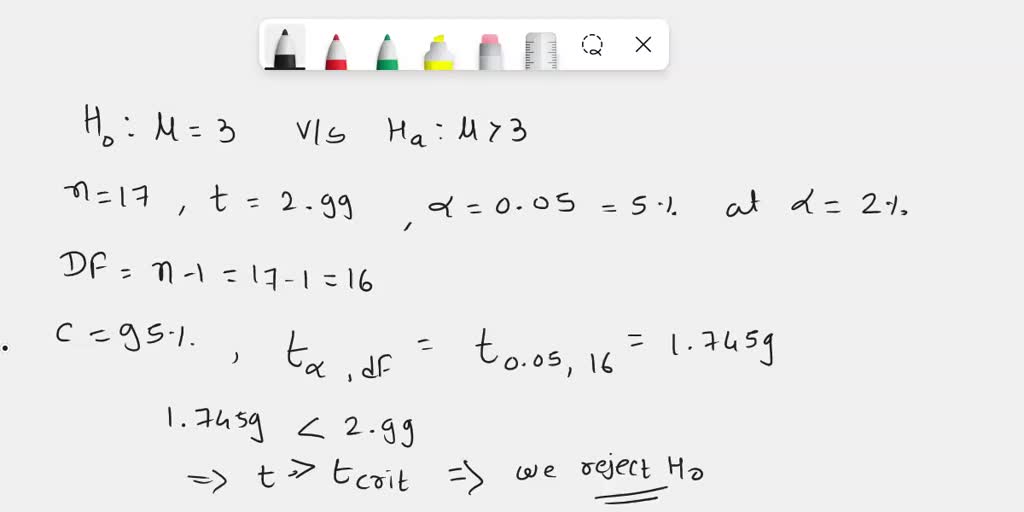 H₀ : μ = 3 v/s Hₐ : μ > 3
n = 17 , t = 2.99 , α = 0.05 = 5% at α = 2%
DF = n - 1 = 17 - 1 = 16
C = 95% , t α , df = t 0.05, 16 = 1.7459
1.7459 < 2.99
⇒ t > t crit ⇒ we reject H₀